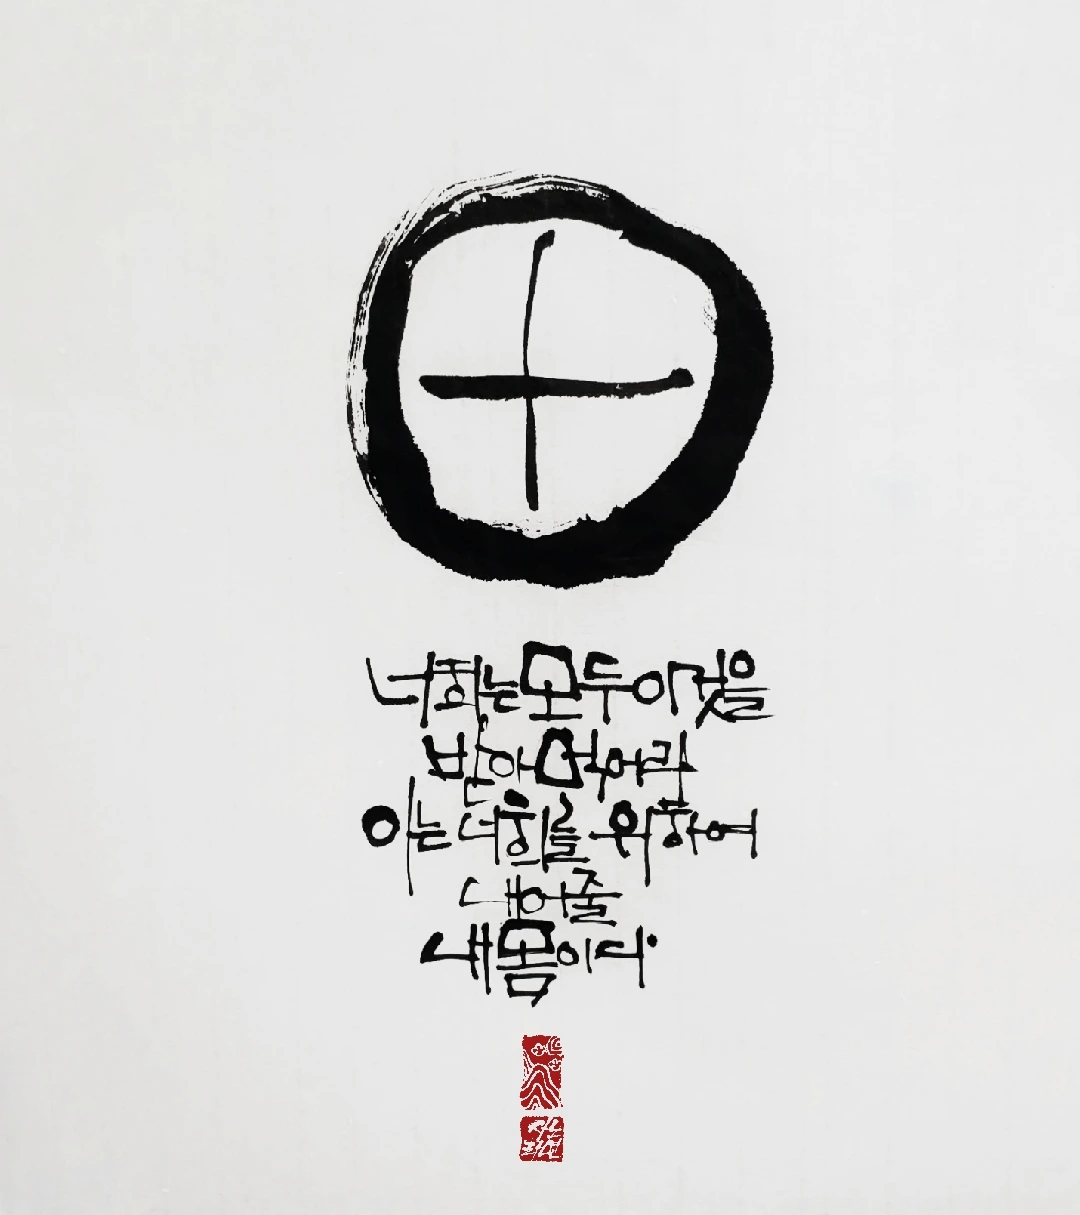 너희는 모두 이것을
받아 먹어라
이는 너희를 위하여
내어줄
내 몸이다.